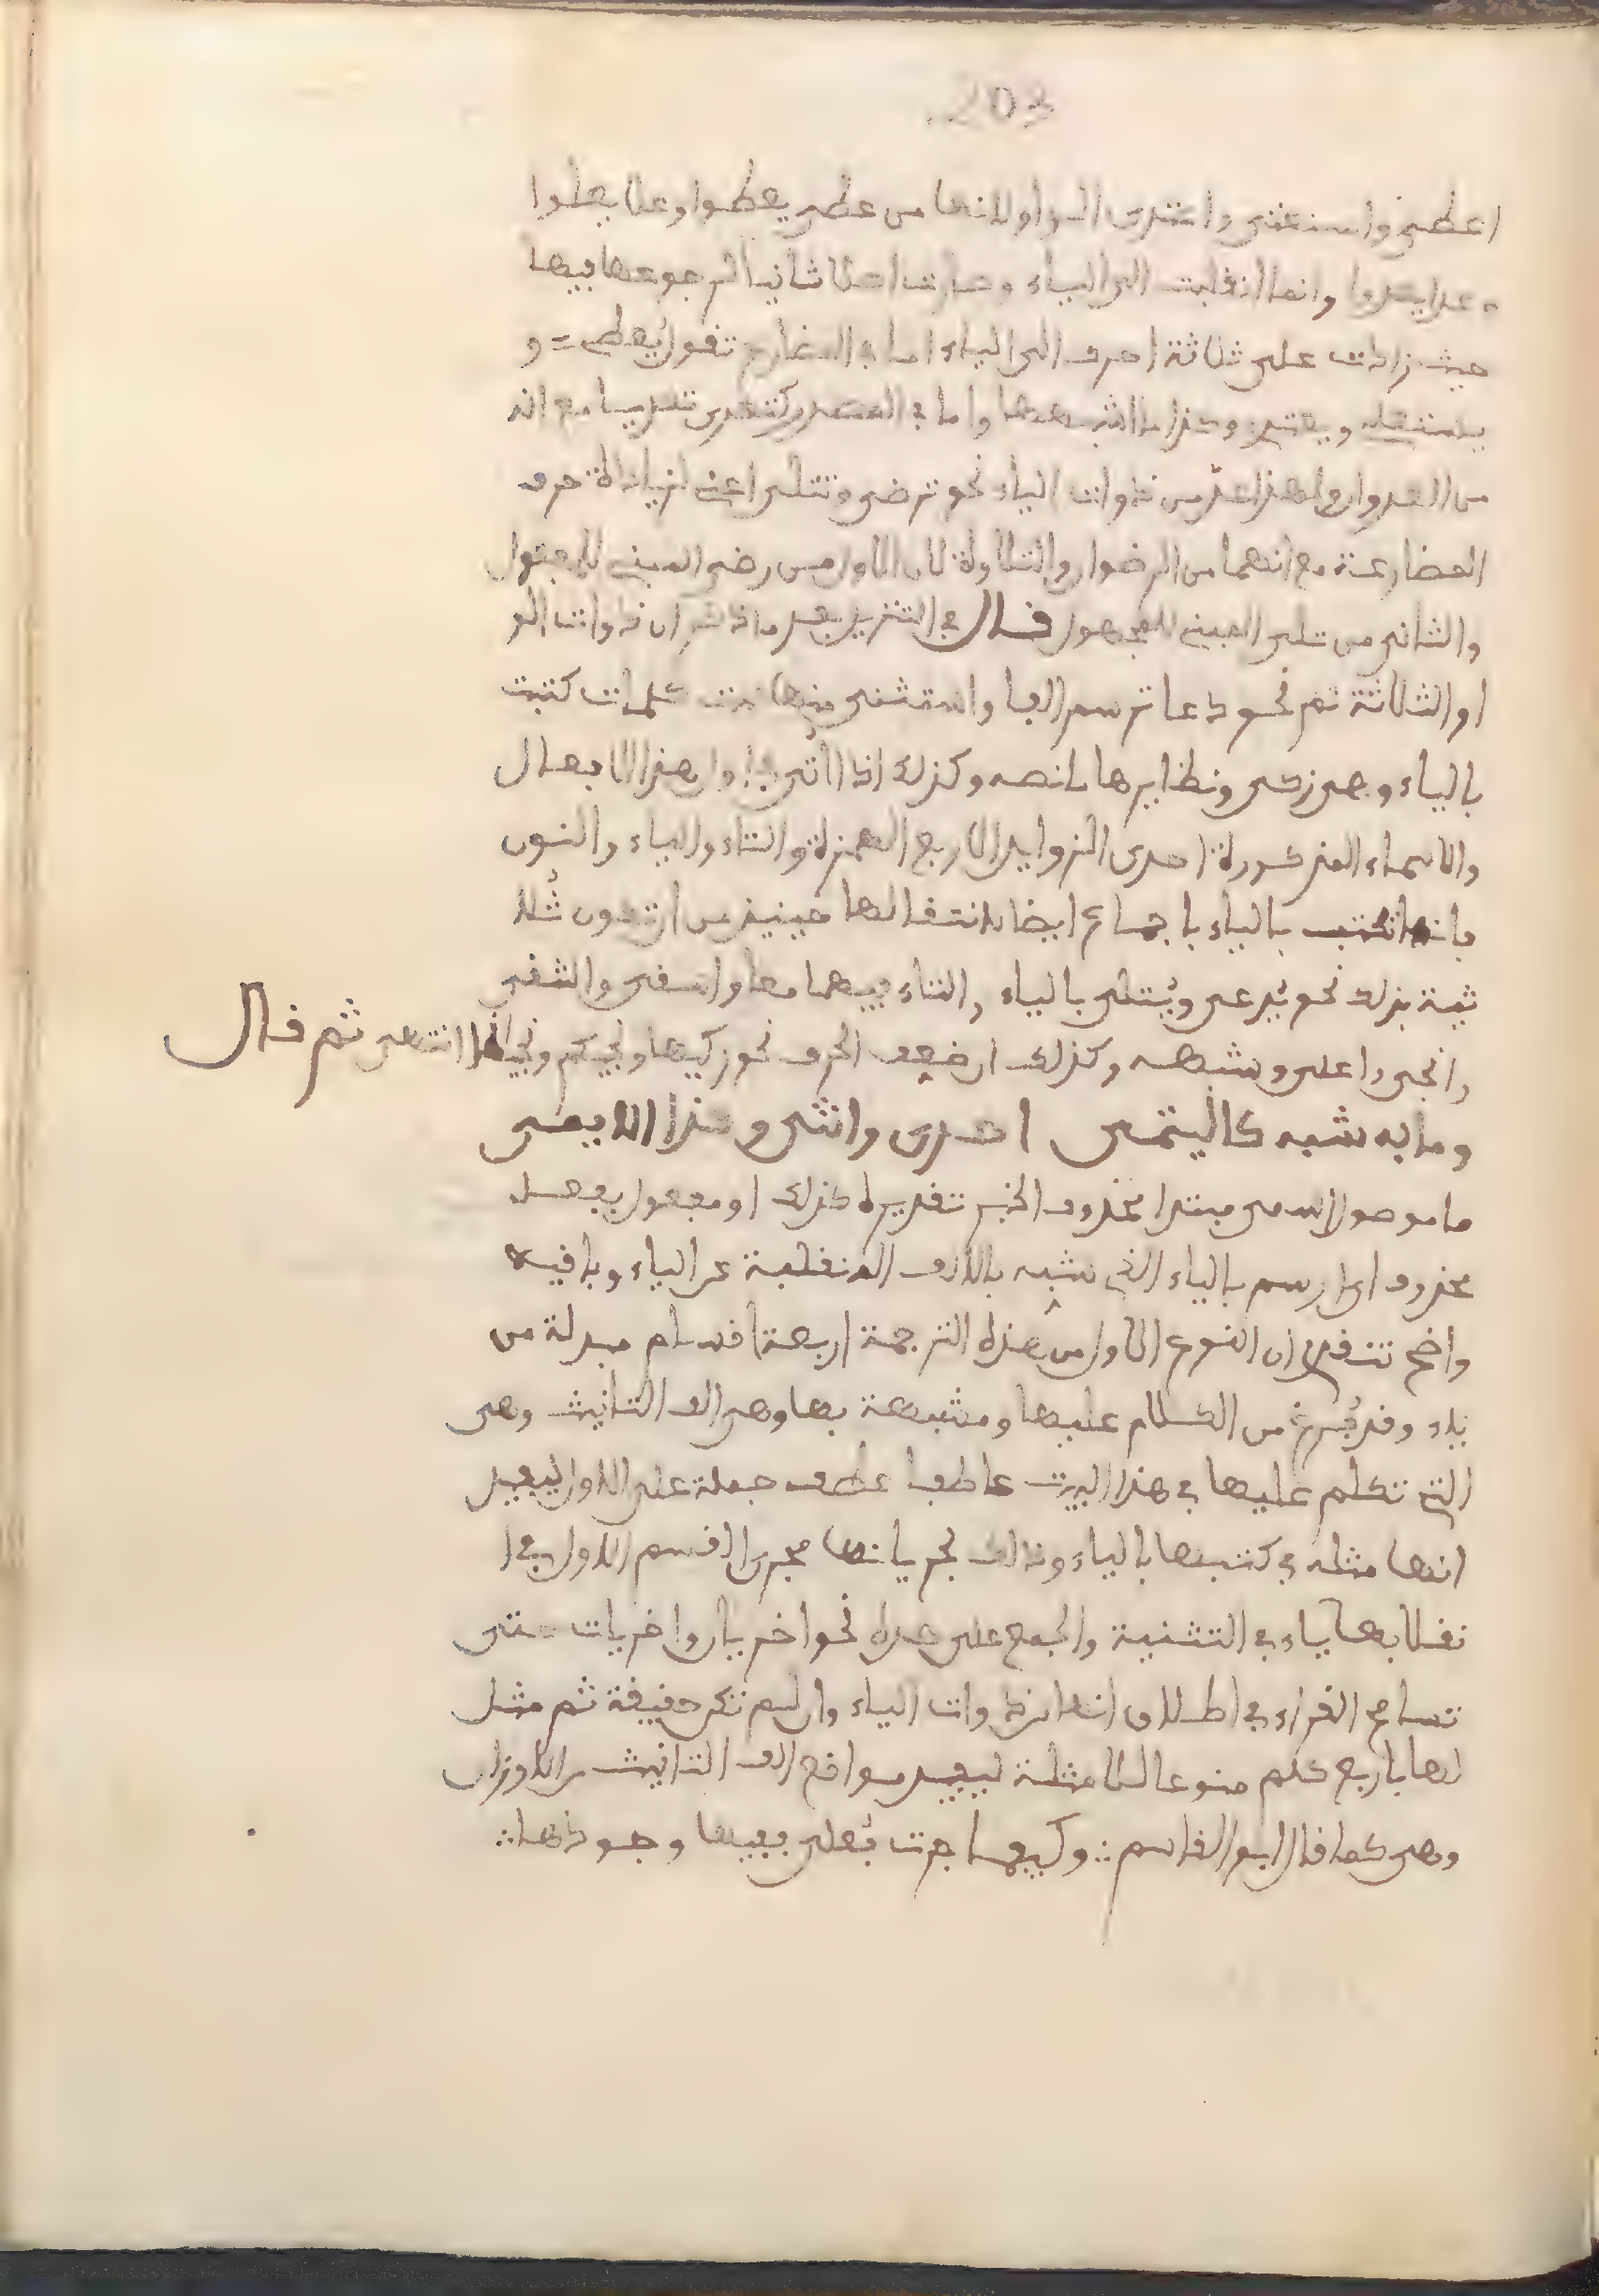 203
اعطى واستغنى واعتدى الواو لانها من عطى يعطوا وعلا يعلوا
وعدا يعدوا وانما انقلبت الى الياء وصارت اصلا ثانيا لرجوعها فيها
حيث زادت على ثلاثة احرف الى الياء اما في المضارع تقول يعطى و
يستعلى ويعتدى وكذا ما اشبهها واما في المصدر كتعدى تعديا مع انه
من العدو ولهذا عد من ذوات الياء نحو ترضى وتتلى اعنى لزيادة حرف
المضارعة مع انهما من الرضوان والتلاوة لان الاول من رضى المبنى للمفعول
والثانى من تلى المبنى للمجهول قال في التنزيل بعد ما ذكر ان ذوات الو
او الثلاثة نحو دعا ترسم الفا واستثنى منها كلمات كتبت
بالياء وهى زكى ونظايرها ما نصه وكذلك اذا اتى في اول هذه الافعال
والاسماء المذكورة احدى الزوايد الاربع الهمزة والتاء والياء والنون
فانها تكتب بالياء باجماع ايضا لانتقالها حينيذ من ان تكون ثلا
ثية بذلك نحو يدعى ويتلى بالياء والتاء فيهما معا واسقى والشقى
وانجى واعلى وشبهه وكذلك ان ضعف الحرف نحو زكيها ونجيكم ونجينا انتهى ثم قال
وما به شبه كاليتمى احدى وانثى وكذا الايمى
ما موصول اسمى مبتدا محذوف الخبر تقديره كذلك او مفعول بفعل
محذوف اى ارسم بالياء الذى شبه بالالف المنقلبة عن الياء وباقيه
واضح تقدم ان النوع الاول من هذه الترجمة اربعة اقسام مبدلة من
ياء وقد فرغ من الكلام عليها ومشبهة بها وهى الف التانيث وهى
التى تكلم عليها في هذا البيت عاطفا عطف جملة على الاول ليفيد
انها مثله في كتبها بالياء وذلك لجريانها مجرى القسم الاول في ا
نقلابها ياء في التثنية والجمع على حده نحو اخريان واخريات حتى
تسامح القراء في اطلاق انها من ذوات الياء وان لم تكن حقيقة ثم مثل
لها باربع كلم منوعا لامثلة ليفيد مواقع الف التانيث من الاوزان
وهى كما قال ابو القاسم ∴ وكيفما جرت فعلى ففيها وجودها ∴